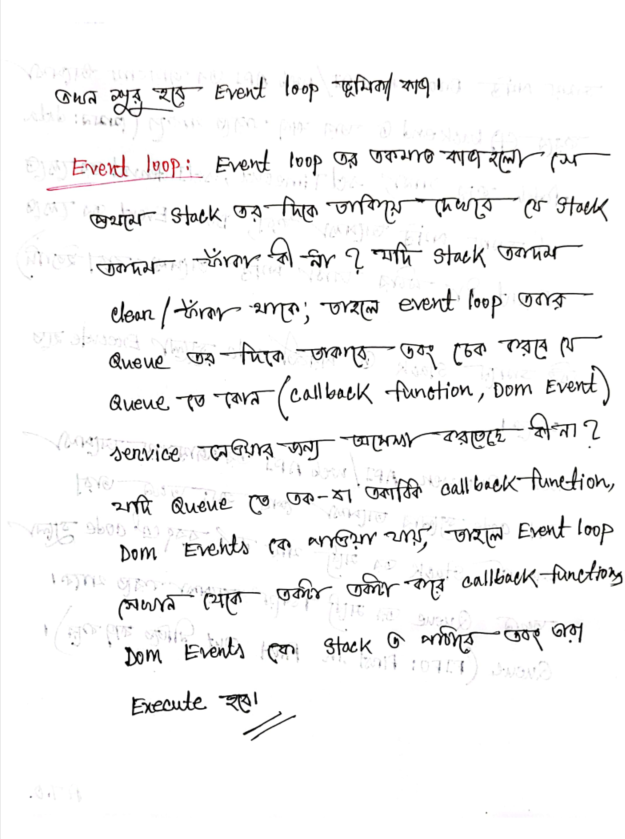 তখন শুরু হবে Event loop ভূমিকা/কাজ।
Event loop: Event loop এর একমাত্র কাজ হলো সে
প্রথমে Stack এর দিকে তাকিয়ে দেখবে যে Stack
একদম ফাঁকা কী না? যদি Stack একদম
clean/ফাঁকা থাকে; তাহলে event loop এবার
Queue এর দিকে তাকাবে এবং চেক করবে যে
Queue তে কোন (callback function, Dom Event)
service নেওয়ার জন্য অপেক্ষা করতেছে কী না?
যদি Queue তে এক-বা একাধিক callback function,
Dom Events কে পাওয়া যায়, তাহলে Event loop
সেখান থেকে একটা একটা করে callback functions
Dom Events কে Stack এ পাঠাবে এবং তারা
Execute হবে।